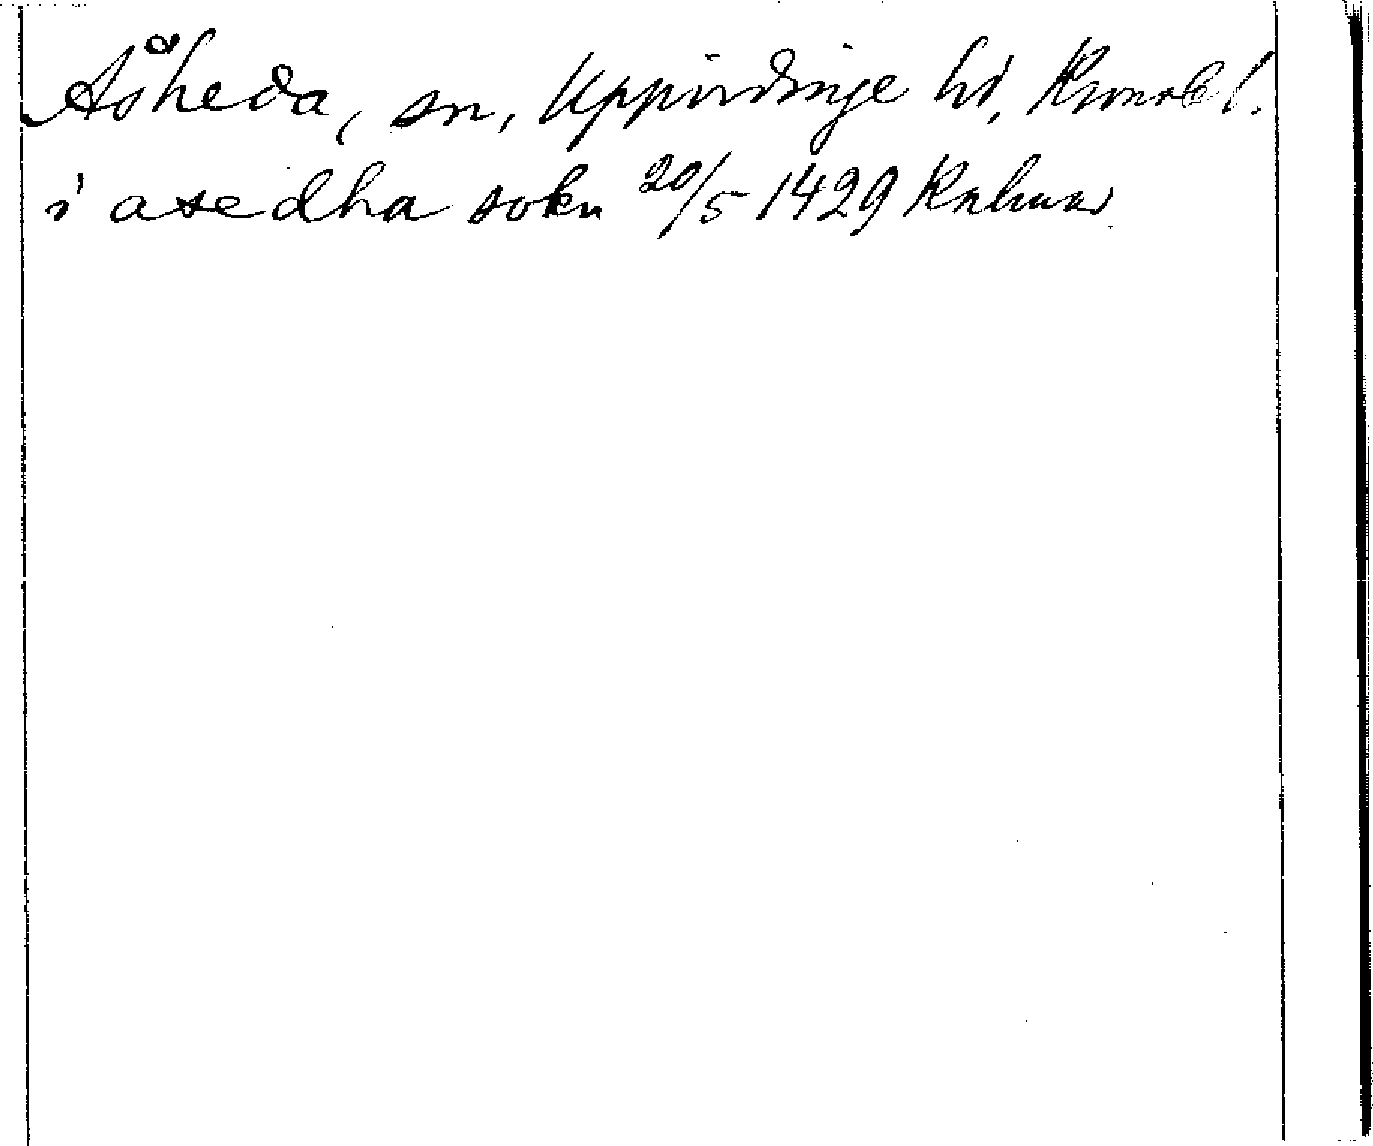 Åsheda, sn, Uppvidinge hd, Kronob l.
i asedha sokn 20/5 1429 Kalmar